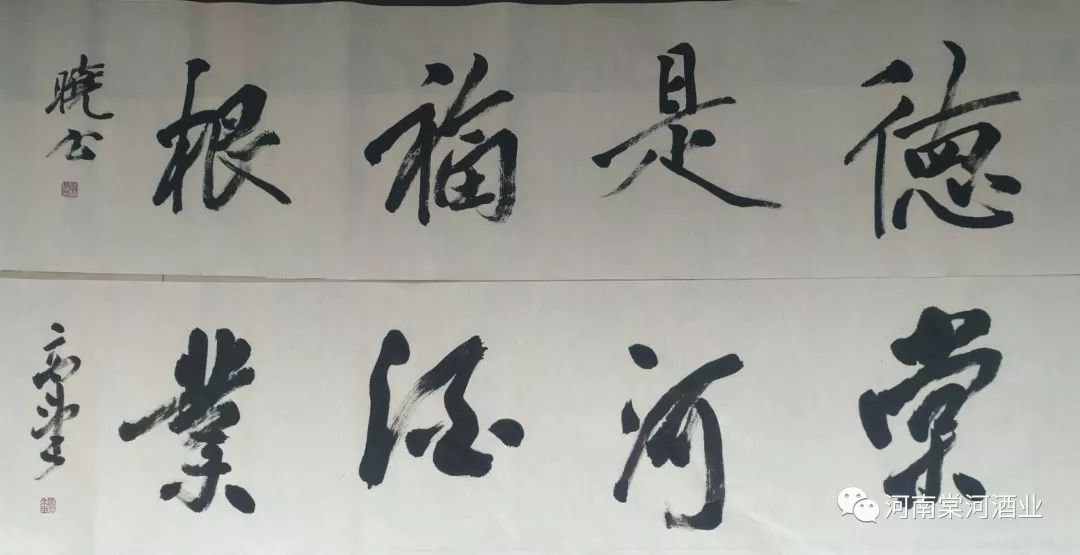 德是福根
曉
棠河酒業
河南棠河酒业